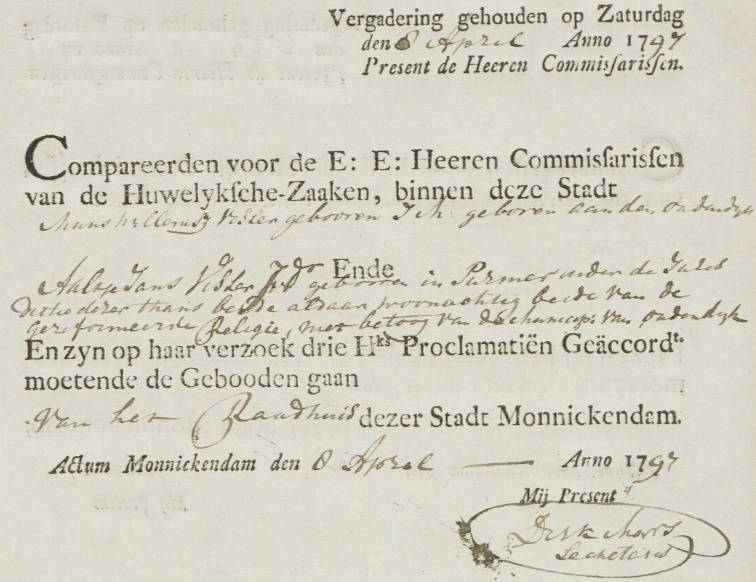 Vergadering gehouden op Zaturdag
den 8 April Anno 1797
Present de Heeren Commiſſariſſen.
Compareerden voor de E: E: Heeren Commiſſariſſen
van de Huwelykſche-Zaaken, binnen deze Stadt
Willemsz Visser gebooren J M geboren aan den
Ende
Aaltje Jans Visser J D geboren in Purmer onder de
dezer thans beide aldaar woonachtig beide van de
gereformeerde Religie, met betoog van van
En zyn op haar verzoek drie Hks Proclamatiën Geäccordt.
moetende de Gebooden gaan
van het Raadhuis dezer Stadt Monnickendam.
Actum Monnickendam den 8 April — Anno 1797
Mij Present
Dirk
Secretaris